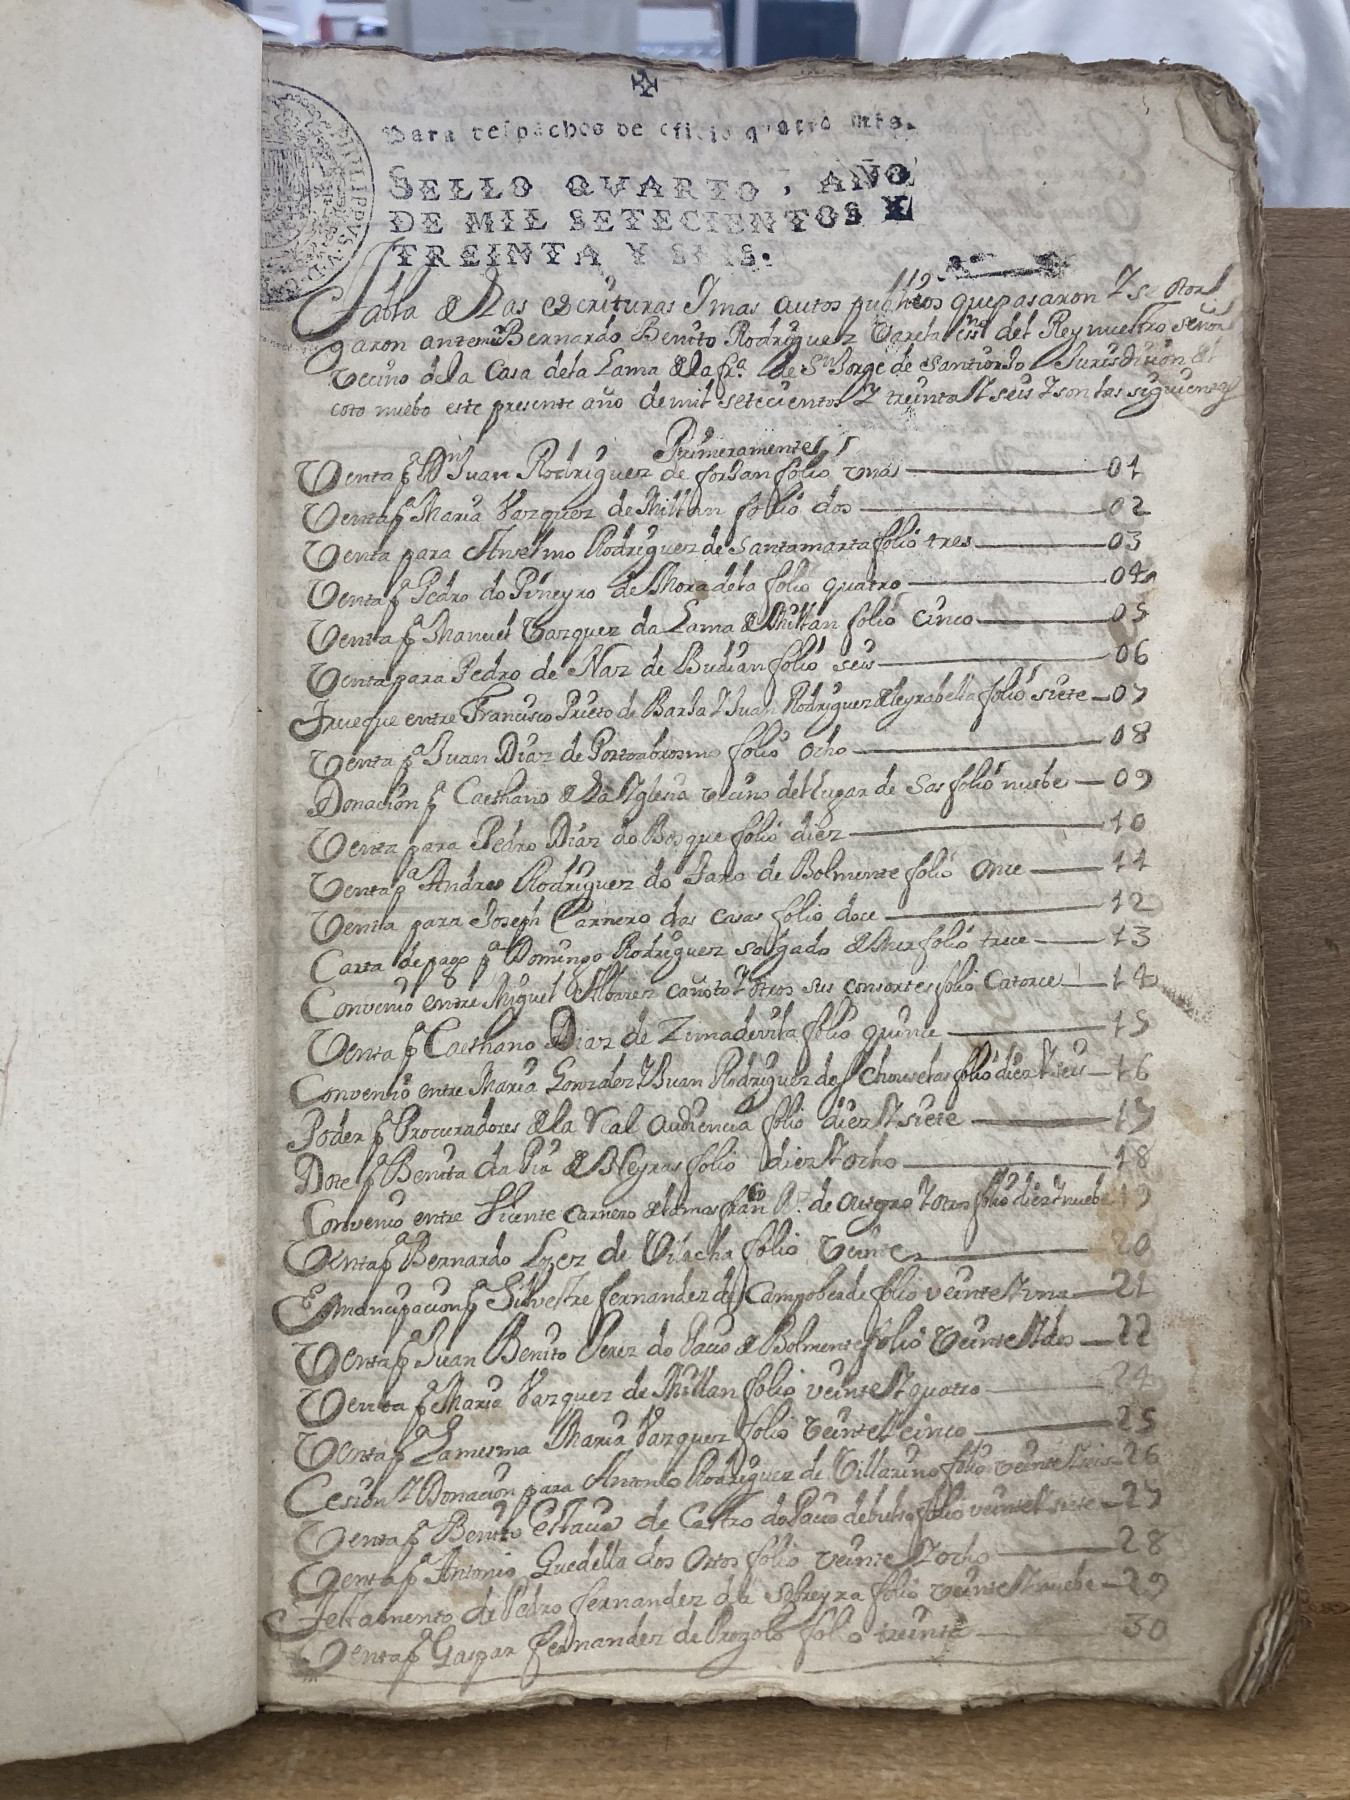 PHILIPPVS V D
Para despachos de oficio quatro mrs.
SELLO QVARTO, AÑO
DE MIL SETECIENTOS Y
TREINTA Y SEIS.
Tabla de Las escrituras Y mas autos publicos que pasaron Y se otor
garon antemi Bernardo Benito Rodriguez Varela essno del Rey nuestro señor
Vecino dela Casa dela Lama de la fra. de Sn Jorge de Santiorso Jurisdicion de
coto nuebo este presente año de mil setecientos Y treinta Y seis Y son las siguientes
Primeramente
Venta pa Dn Juan Rodriguez de forxan folio Vno 01
Venta pa Maria Vazquez de Millan folio dos 02
Venta para Anselmo Rodriguez de Santamarta folio tres 03
Venta pa Pedro do Pineyro de Moradela folio quatro 04
Venta pa Manuel Vazquez da Lama de Millan folio Cinco 05
Venta para Pedro de Naz de Budian folio seis 06
Trueque entre Francisco Prieto de Barba Y Juan Rodriguez de folio siete 07
Venta pa Juan Diaz de folio ocho 08
Donacion pa Caethano de La Yglesia vecino del lugar de Sas folio nuebe 09
Venta para Pedro Diaz do Bosque folio diez 10
Venta pa Andres Rodriguez do Faro de Bolmente folio Once 11
Venta para Joseph Carnero das Casas folio doce 12
Carta de pago pa Domingo Rodriguez Salgado de Mer folio trece 13
Convenio entre Miguel Albarez Canoto Y otros sus consortes folio Catorce 14
Venta pa Caethano Diaz de Zimadevila folio quince 15
Convenio entre Maria Gonzalez Y Juan Rodriguez das Chouselas folio diez Y seis 16
Poder pa Procuradores de la Real Audiencia folio diez Y siete 17
Dote pa Benita da Pia de Neyras folio diez Y ocho 18
Convenio entre Vicente Carnero de Lamas fran Rz. de Outeyro Y otros folio diez Y nuebe 19
Venta pa Bernardo Lopez de Vilacha folio Veinte 20
Emancipacion pa Silvestre fernandez de Campo folio veinte Y vno 21
Venta pa Juan Benito Perez do Pacio de Bolmente folio Veinte Y dos 22
Venta pa Maria Vazquez de Millan folio veinte Y quatro 24
Venta pa Lamesma Maria Vazquez folio Veinte Y cinco 25
Cesion Y Donacion para Antonio Rodriguez de Villarino folio veinte Y seis 26
Venta pa Benito Estacio de Castro do Pacio folio veinte Y siete 27
Venta pa Antonio Guedella dos Ortos folio veinte Y ocho 28
Testamento de Pedro fernandez da Sobreyra folio veinte Y nuebe 29
Venta pa Gaspar fernandez de folio treinta 30